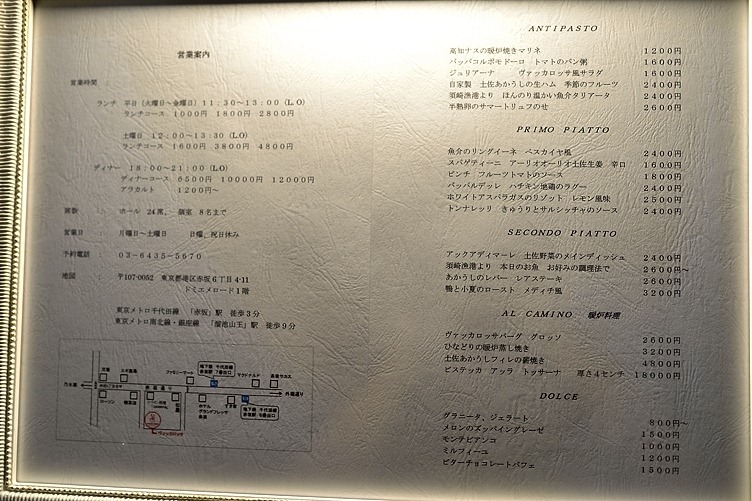 営業案内
営業時間 :
ランチ 平日(火曜日~金曜日) 11:30~13:00(L.O)
ランチコース 1000円 1800円 2800円
土曜日 12:00~13:30(L.O)
ランチコース 1600円 3800円 4800円
ディナー 18:00~21:00(L.O)
ディナーコース 6500円 10000円 12000円
アラカルト 1200円~
席数 : ホール 24席、 個室 8名まで
営業日 : 月曜日~土曜日 日曜、祝日休み
予約電話 : 03-6435-5670
地図 : 〒107-0052 東京都港区赤坂6丁目4-11
ドミエメロード1階
東京メトロ千代田線 「赤坂」駅 徒歩3分
東京メトロ南北線・銀座線 「溜池山王」駅 徒歩9分
ファミリーマート
マクドナルド
外堀通り
赤坂通り
ローソン
ANTIPASTO
高知ナスの暖炉焼きマリネ 1200円
パッパコルポモドーロ トマトのパン粥 1600円
ジュリアーナ ヴァッカロッサ風サラダ 1600円
自家製 土佐あかうしの生ハム 季節のフルーツ 2400円
須崎漁港より ほんのり温かい魚介タリアータ 2400円
半熟卵のサマートリュフのせ 2600円
PRIMO PIATTO
魚介のリングイーネ ペスカイヤ風 2400円
スパゲティーニ アーリオオーリオ土佐生姜 辛口 1600円
ピンチ フルーツトマトのソース 1800円
パッパルデッレ ハチキン地鶏のラグー 2400円
ホワイトアスパラガスのリゾット レモン風味 2500円
トンナレッリ きゅうりとサルシッチャのソース 2400円
SECONDO PIATTO
アックアディマーレ 土佐野菜のメインディッシュ 2400円
須崎漁港より 本日のお魚 お好みの調理法で 2600円~
あかうしのレバー レアステーキ 2600円
鴨と小夏のロースト メディチ風 3200円
AL CAMINO 暖炉料理
ヴァッカロッサバーグ グロッソ 2600円
ひなどりの暖炉蒸し焼き 3200円
土佐あかうしフィレの薪焼き 4800円
ビステッカ アッラ トッサーナ 厚さ4センチ 18000円
DOLCE
グラニータ、ジェラート 800円~
メロンのズッパイングレーゼ 1500円
モンテビアンコ 1000円
ミルフィーユ 1200円
ビターチョコレートパフェ 1500円